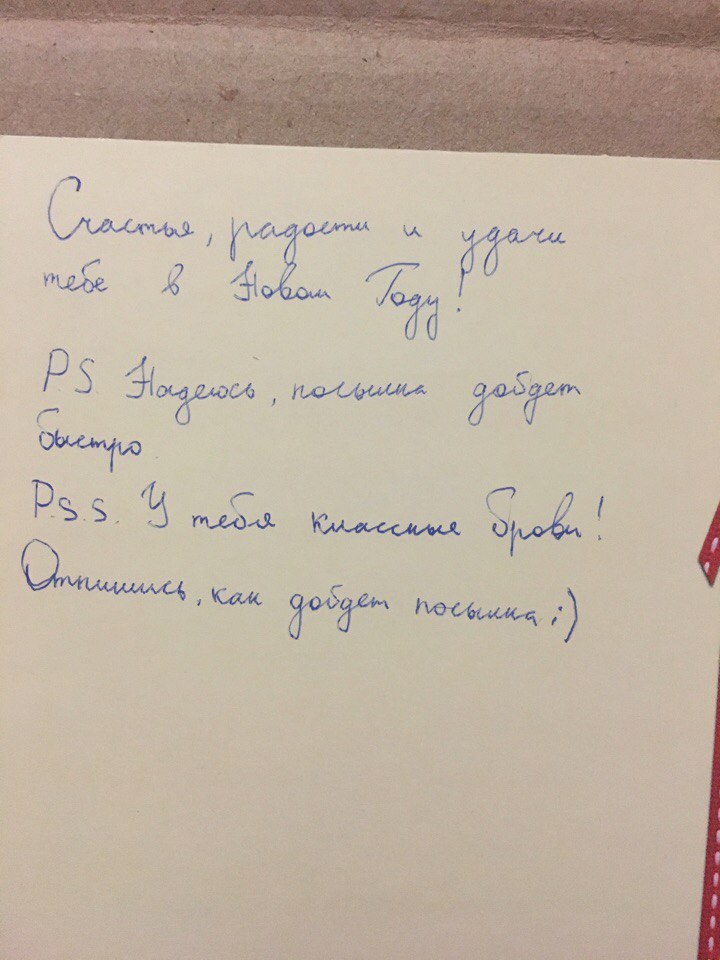 Счастья, радости и удачи
тебе в Новом Году!
P.S. Надеюсь, посылка дойдет
быстро
P.S.S. У тебя классные брови!
Отпишись, как дойдет посылка ;)